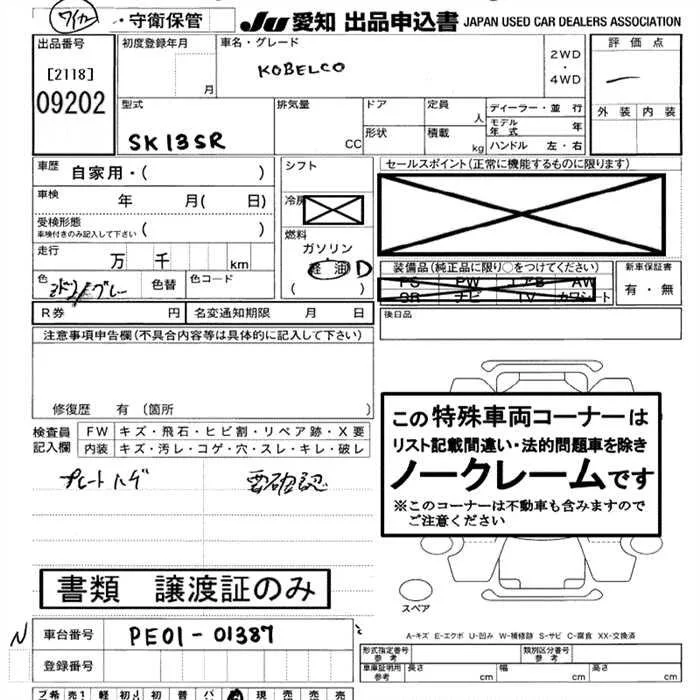 ワイカー ・守衛保管 JU 愛知 出品申込書 JAPAN USED CAR DEALERS ASSOCIATION
出品番号 初度登録年月 月 車名・グレード KOBELCO 2WD・4WD 評価点 ー
[2118]
09202
外装 内装
型式 SK13SR 排気量 CC ドア 定員 人 ディーラー・並行
形状 積載 kg モデル年式 年
ハンドル 左・右
車歴 自家用・( ) シフト セールスポイント(正常に機能するものに限ります)
車検 年 月( 日) 冷房
受検形態 ( )
車検付きのみ記入して下さい
燃料
ガソリン
軽油 D
( )
走行 万 千 km
色 グレー 色替 色コード
装備品(純正品に限り○をつけてください) 新車保証書
PS PW エアB AW 有・無
SR ナビ TV カワシート
R券 円 名変通知期限 月 日 後日品
注意事項申告欄(不具合内容等は具体的に記入して下さい)
修復歴 有 (箇所 )
検査員記入欄 FW キズ・飛石・ヒビ割・リペア跡・X要
内装 キズ・汚レ・コゲ・穴・スレ・キレ・破レ
プレートハゲ 要確認
この特殊車両コーナーは
リスト記載間違い・法的問題車を除き
ノークレームです
※このコーナーは不動車も含みますので
ご注意ください
書類 譲渡証のみ
スペア
N 車台番号 PE01-01387
登録番号
A-キズ E-エクボ U-凹み W-補修跡 S-サビ C-腐食 XX-交換済
形式指定番号 参考 類別区分番号 参考
車庫証明用 参考 長さ cm 幅 cm 高さ cm